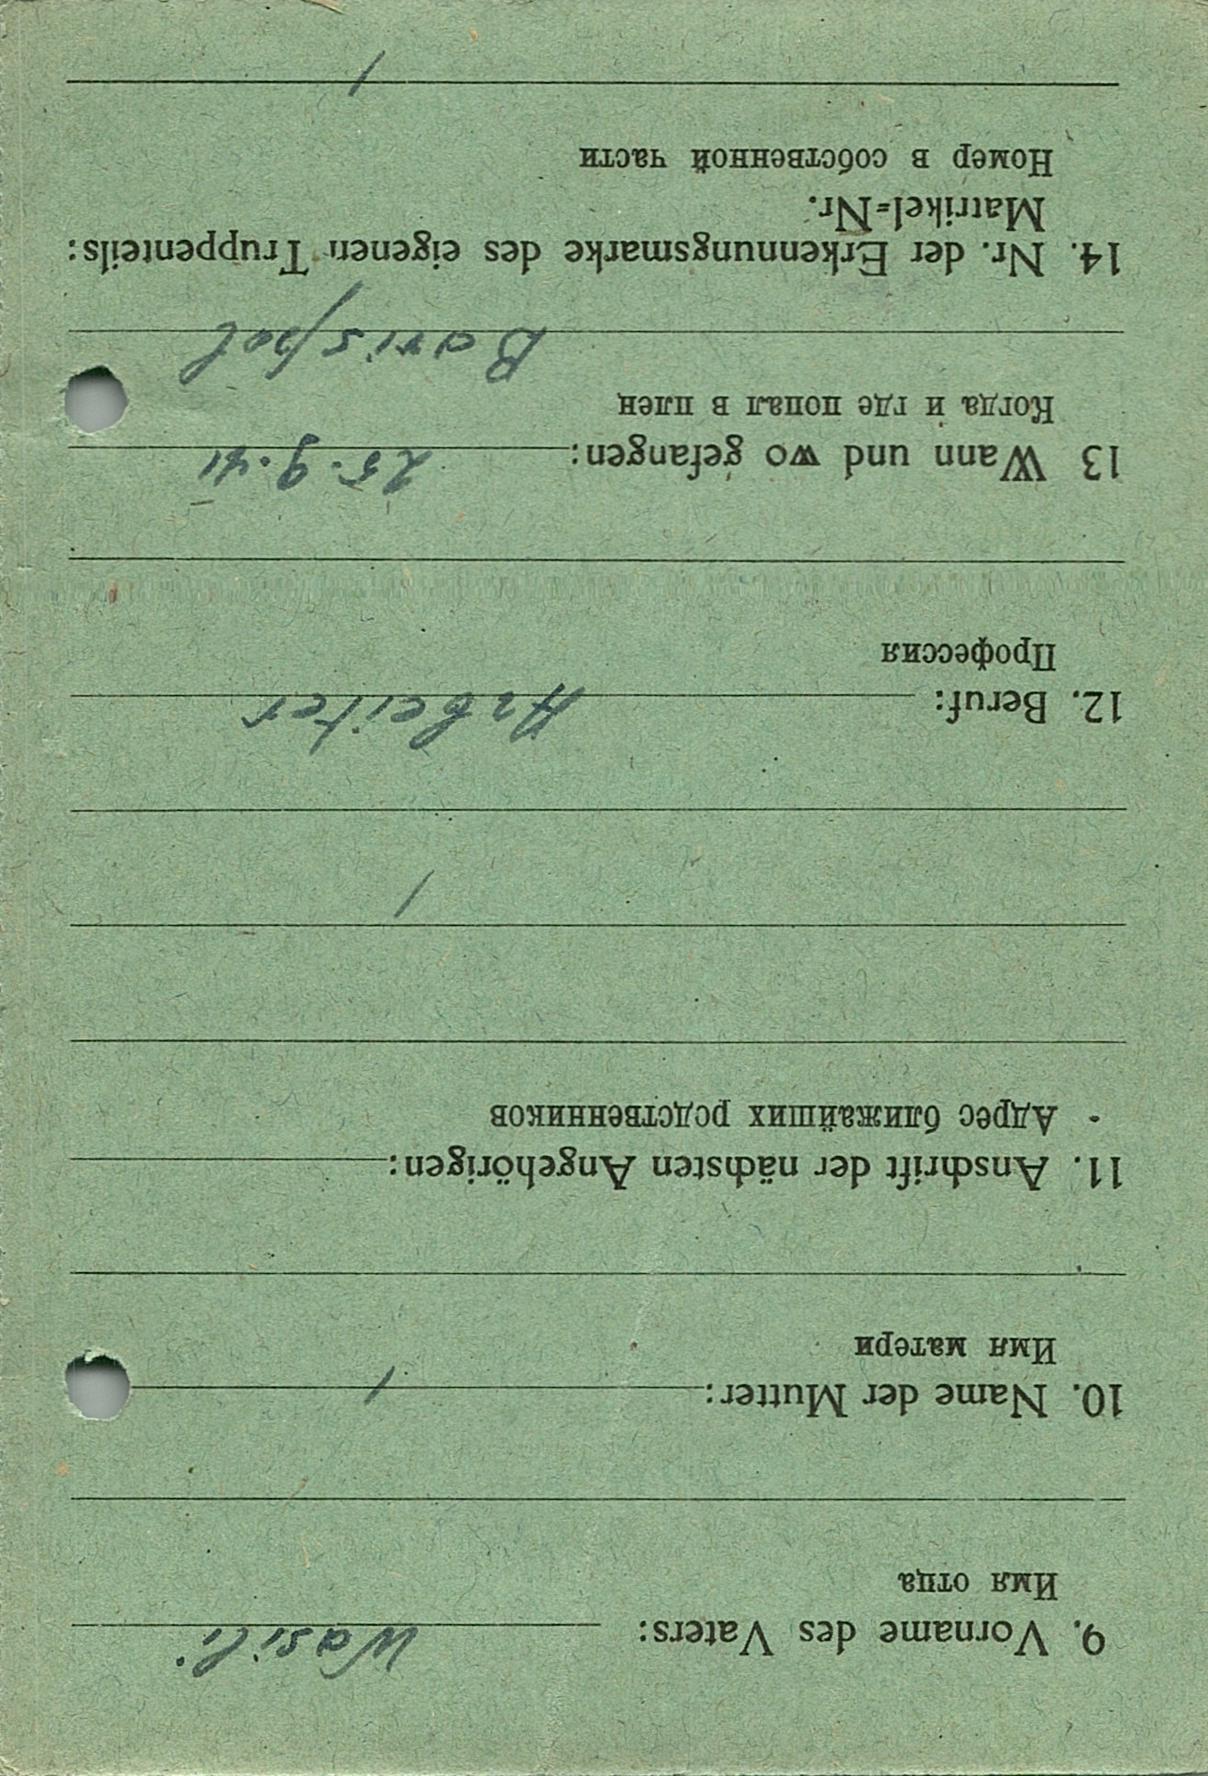 9. Vorname des Vaters: Wasili
Имя отца
10. Name der Mutter: /
Имя матери
11. Anschrift der nächsten Angehörigen:
Адрес ближайших родственников
/
12. Beruf: Arbeiter
Профессия
13 Wann und wo gefangen: 25.9.41
Когда и где попал в плен
Borispol
14. Nr. der Erkennungsmarke des eigenen Truppenteils:
Matrikel=Nr.
Номер в собственной части
/